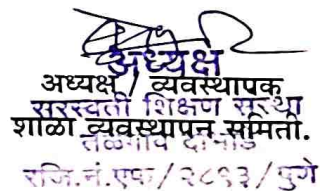 अध्यक्ष
अध्यक्ष / व्यवस्थापक
सरस्वती शिक्षण संस्था
शाळा व्यवस्थापन समिती.
तळेगाव दाभाडे
रजि.नं.एफ/२८९३/पुणे